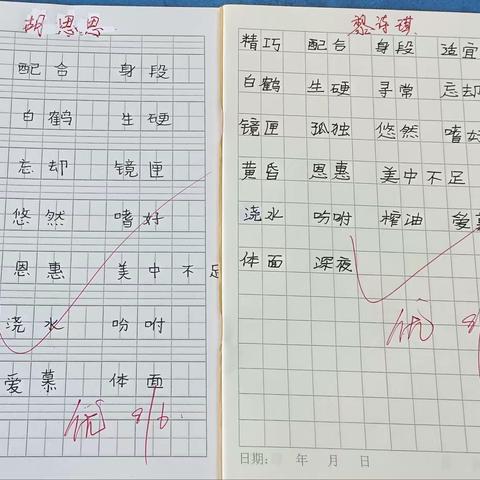 胡恩恩
配合 身段
白鹤 生硬
忘却 镜匣
悠然 嗜好
恩惠 美中不足
浇水 吩咐
爱慕 体面
优 9/6
黎诗琪
精巧 配合 身段 适宜
白鹤 生硬 寻常 忘却
镜匣 孤独 悠然 嗜好
黄昏 恩惠 美中不足
浇水 吩咐 榨油 爱慕
体面 深夜
优
日期: 年 月 日